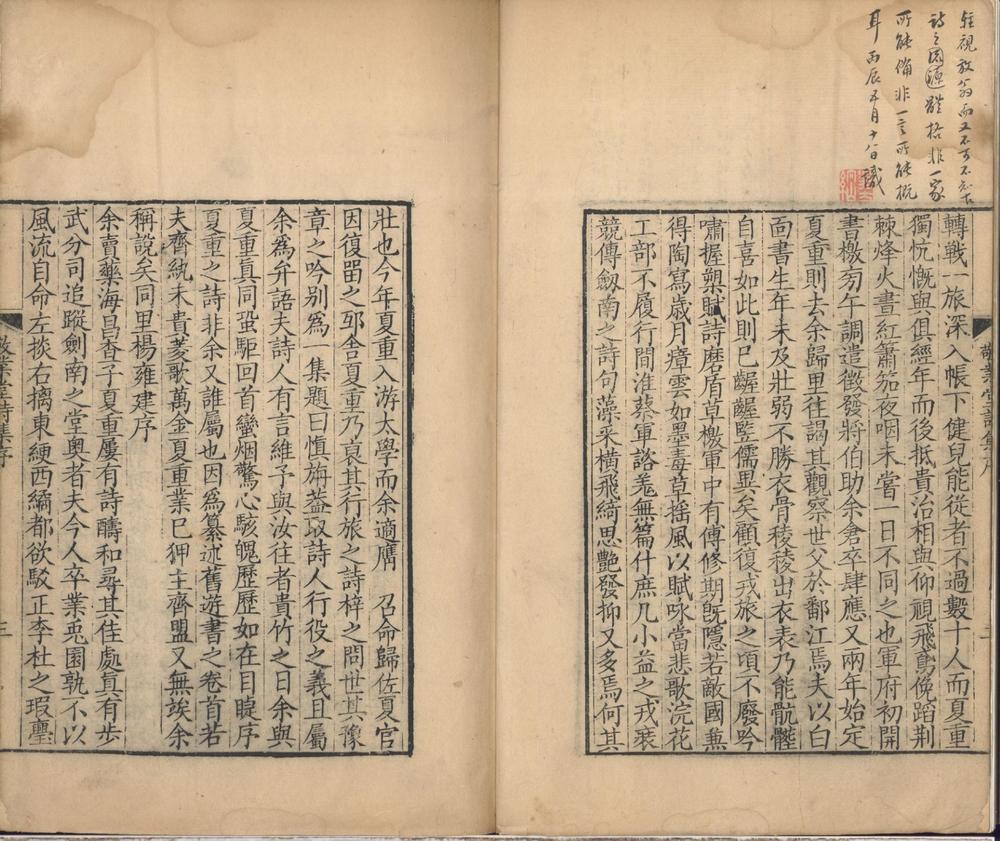 輕視放翁而又不可不知古
詩之園逕體格非一家
所能備非一言所能概
耳丙辰五月十八日識
轉戰一旅深入帳下健兒能從者不過數十人而夏重
獨忼慨與俱經年而後抵貴治相與仰視飛鳶俛蹈荆
棘烽火晝紅簫笳夜咽未嘗一日不同之也軍府初開
書檄旁午調遣徵發將伯助余倉卒肆應又兩年始定
夏重則去余歸里往謁其觀察世父於鄱江焉夫以白
面書生年未及壯弱不勝衣骨稜稜出衣表乃能骯髒
自喜如此則已齷齪豎儒異矣顧復戎旅之頃不廢吟
嘯握槊賦詩磨盾草檄軍中有傅修期旣隱若敵國兼
得陶寫歲月瘴雲如墨毒草揺風以賦咏當悲歌浣花
工部不履行間淮蔡軍諮羗無篇什庶几小益之戎裘
競傳劒南之詩句藻采橫飛綺思艷發抑又多焉何其
敬業堂詩集序
二
壯也今年夏重入游太學而余適膺　召命歸佐夏官
因復畱之邸舍夏重乃裒其行旅之詩梓之問世其豫
章之吟别爲一集題曰慎旃葢取詩人行役之義且屬
余爲弁語夫詩人有言維予與汝往者貴竹之日余與
夏重眞同蛩駏回首蠻烟驚心駭魄歷歷如在目睫序
夏重之詩非余又誰屬也因爲纂述舊遊書之卷首若
夫齊紈未貴菱歌萬金夏重業已狎主齊盟又無竢余
稱說矣同里楊雍建序
余賣藥海昌查子夏重屢有詩醻和尋其佳處眞有步
武分司追蹤劍南之堂奥者夫今人卒業兎園孰不以
風流自命左掞右摛東綆西繘都欲駁正李杜之瑕璺
敬業堂詩集序
三